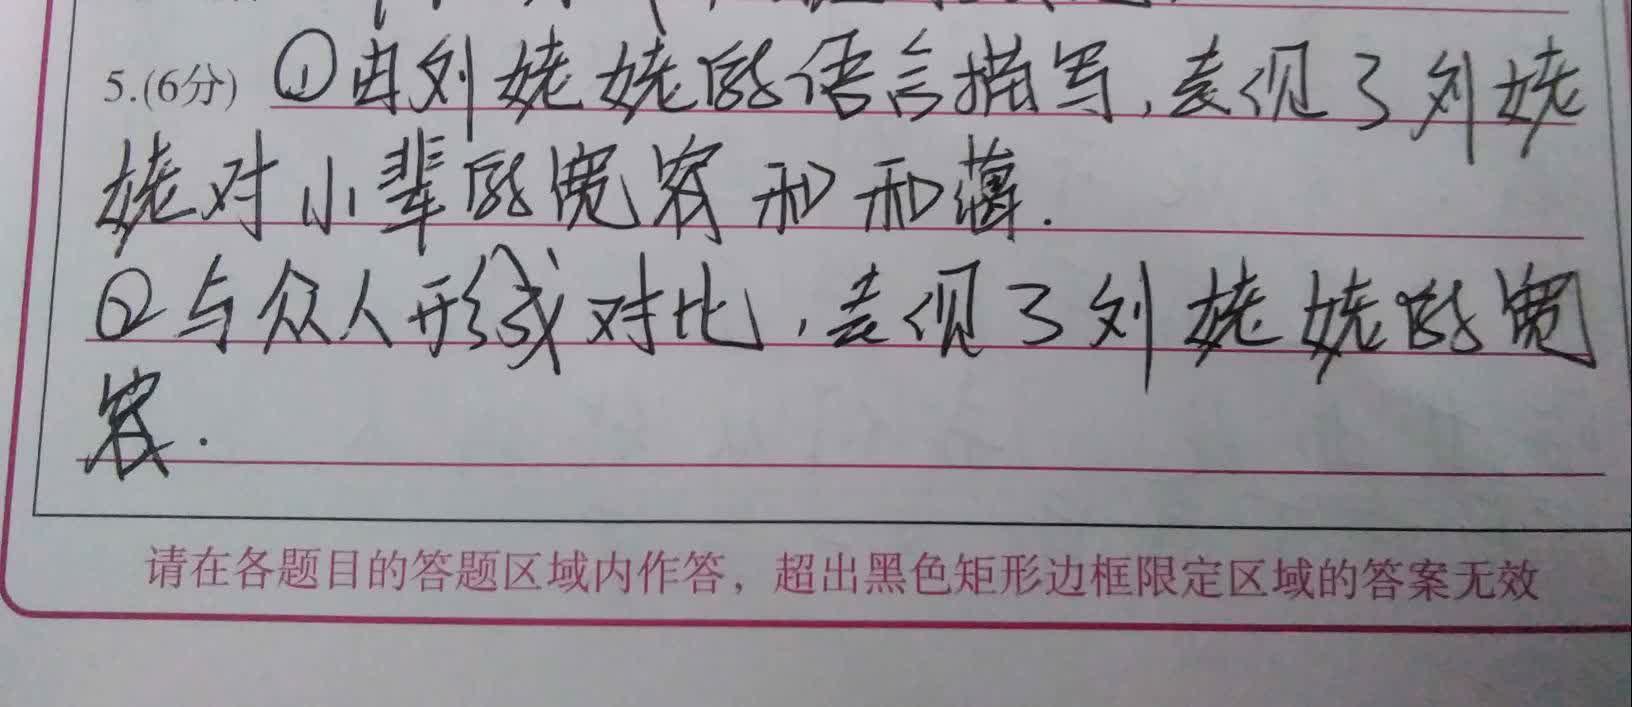 5.(6分) ①由刘姥姥的语言描写,表现了刘姥
姥对小辈的宽容和和蔼.
②与众人形成对比,表现了刘姥姥的宽
容.
请在各题目的答题区域内作答，超出黑色矩形边框限定区域的答案无效